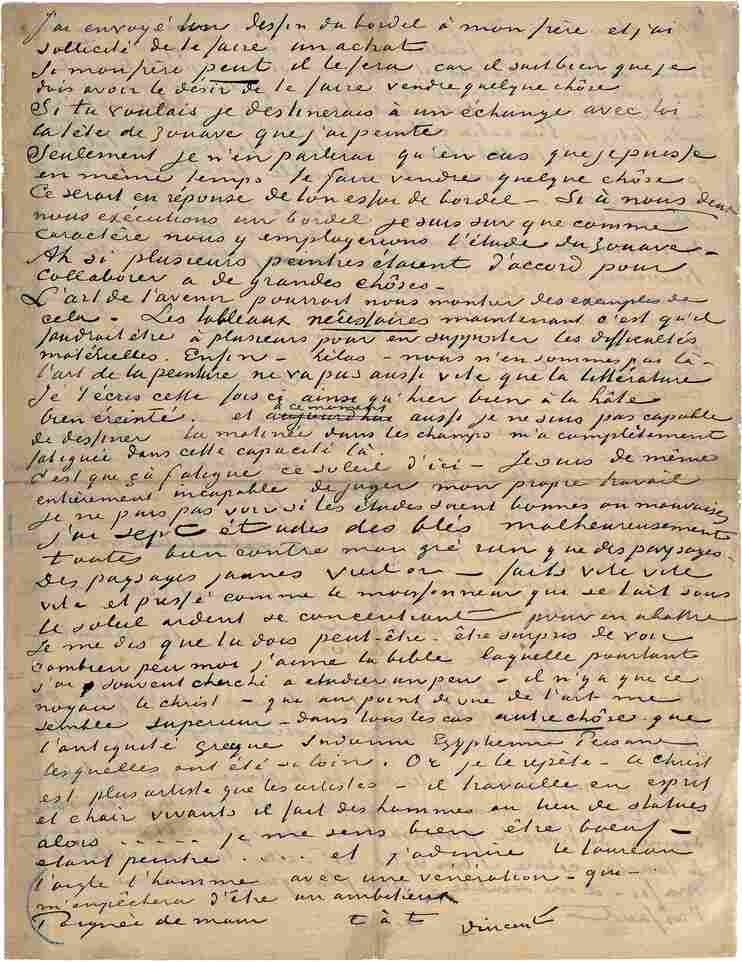 J'ai envoyé ton dessin du bordel à mon frère et j'ai
sollicité de te faire un achat
Si mon frère peut il le fera car il sait bien que je
dois avoir le désir de te faire vendre quelque chôse
Si tu voulais je destinerais à un échange avec toi
la tête de Zouave que j'ai peinte
Seulement je n'en parlerai qu'en cas que je puisse
en même temps te faire vendre quelque chôse
Ce serait en réponse de ton essai de bordel – Si à nous deux
nous exécutions un bordel je suis sur que comme
caractère nous y employerions l'étude du Zouave –
Ah si plusieurs peintres étaient d'accord pour
collaborer a de grandes chôses –
L'art de l'avenir pourrait nous montrer des exemples de
cela – Les tableaux nécessaires maintenant c'est qu'il
faudrait être à plusieurs pour en supporter les difficultés
matérielles. Enfin – hélas – nous n'en sommes pas là –
l'art de la peinture ne va pas aussi vite que la littérature
Je t'écris cette fois ci ainsi qu'hier bien à la hâte
bien éreinté. – et aujourd'hui à ce moment aussi je ne suis pas capable
de dessiner la matinée dans les champs m'a complètement
fatiguée dans cette capacité là.
C'est que çà fatigue ce soleil d'ici – Je suis de même
entièrement incapable de juger mon propre travail
Je ne puis pas voir si les études soient bonnes ou mauvaises
J'ai sept études des blés malheureusement
toutes bien contre mon gré rien que des paysages –
Des paysages jaunes vieil or – faits vite vite
vite et pressé comme le moissonneur que se tait sous
le soleil ardent se concentrant pour en abattre
Je me dis que tu dois peut-être être surpris de voir
combien peu moi j'aime la bible laquelle pourtant
j'ai souvent cherché a etudier un peu – il n'y a que ce
noyau le christ – que au point de vue de l'art me
semble superieur – dans tous les cas autre chôse que
l'antiquité grecque Indienne Egyptienne Persane
lesquelles ont été si loin. Or je le repète – ce christ
est plus artiste que les artistes – il travaille en esprit
et chair vivants il fait des hommes au lieu de statues
alors ..... je me sens bien être bœuf –
étant peintre .... et j'admire le taureau
l'aigle l'homme avec une vénération – que –
m'empêchera d'être un ambitieux
Poignée de main t à t Vincent